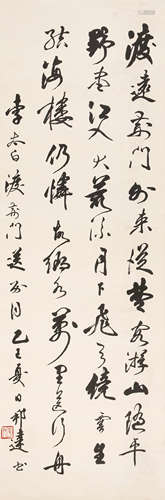 渡遠荊門外來從楚國游山隨平
野盡江入大荒流月下飛天鏡雲生
結海樓仍憐故鄉水萬里送行舟
李太白渡荊門送別 夏日邦達書